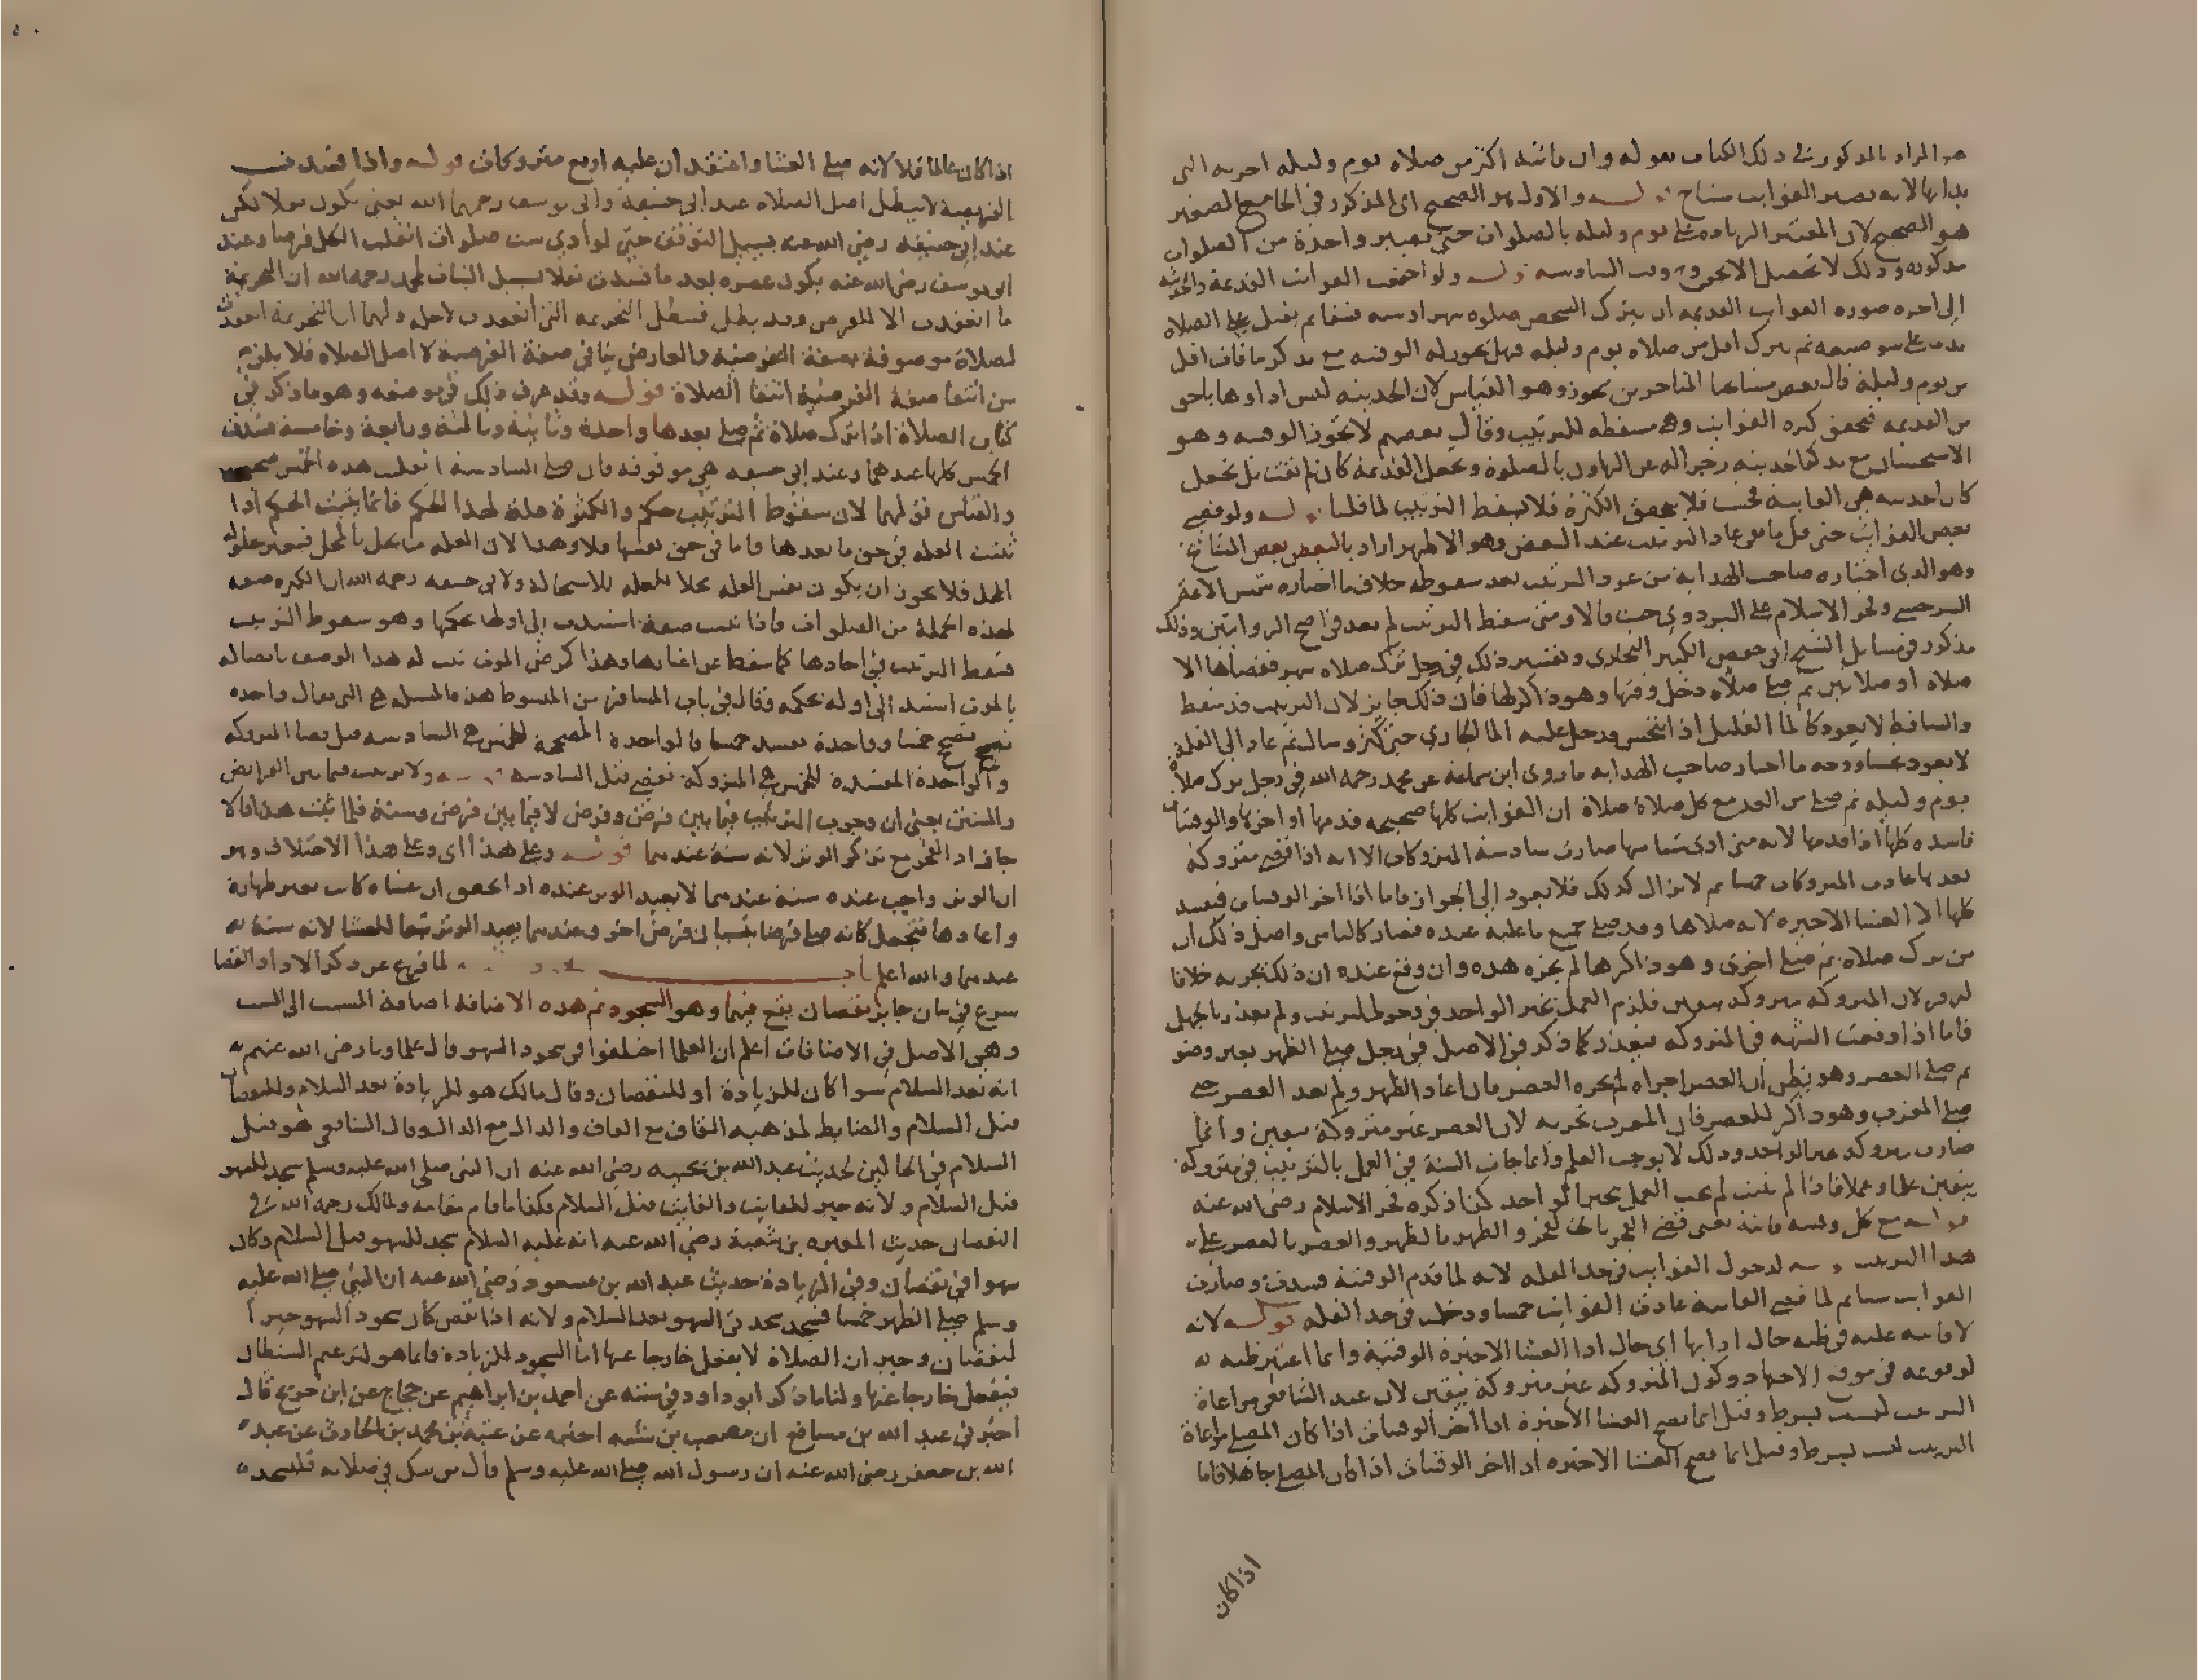 هو المراد بالمذكور في ذلك الكتاب بقوله وان فاتته اكثر من صلاة يوم وليله اجزته التي
بدا بها لانه يصير الفوايت ستا ح قوله والاول هو الصحيح اى المذكور في الجامع الصغير
هو الصحيح لان المعتبر الزيادة على يوم وليله بالصلوات حتى يصير واحدة من الصلوات
مكررة وذلك لا تحصل الا بخروج وقت السادسة قوله ولو اجتمعت الفوايت القديمة والحديثة
الى اخره صورة الفوايت القديمة ان يترك الشخص صلوة شهر او سنة فسقا ثم يقبل على الصلاة
ندما على سو صنيعه ثم يترك اقل من صلاة يوم وليله فهل تجوز له الوقتية مع تذكر ما فات اقل
من يوم وليلة قال بعض مشايخنا المتاخرين تجوز وهو القياس لان الحديثة ليس اداوها باحق
من القديمة فتحقق كثرة الفوايت وهى مسقطه للترتيب وقال بعضهم لا تجوز الوقتية وهو
الاستحسان مع تذكر الحديثه زجرا له عن التهاون بالصلوة وتجعل القديمة كان لم تفت بل تجعل
كان الحديثه هي الفايتة فحسب فلا يتحقق الكثرة فلا يسقط الترتيب لما قلنا قوله ولو قضى
بعض الفوايت حتى قل ما بقي عاد الترتيب عند البعض وهو الاظهر اراد بالبعض بعض المشايخ
وهو الذي اختاره صاحب الهداية من عود الترتيب بعد سقوطه خلاف ما اختاره شمس الائمة
السرخسي وفخر الاسلام على البزدوي حيث قالا ومتى سقط الترتيب لم يعد في اصح الروايتين وذلك
مذكور في مسايل الشيخ ابي حفص الكبير البخاري وتفسير ذلك في رجل ترك صلاة شهر فقضاها الا
صلاة او صلاتين ثم صلى صلاة دخل وقتها وهو ذاكر لها فان ذلك جايز لان الترتيب قد سقط
والساقط لا يعود كالما القليل اذا تنجس ودخل عليه الما الجاري حتى كثر وسال ثم عاد الى القلة
لا يعود نجسا ووجه ما اختار صاحب الهداية ما روى ابن سماعة عن محمد رحمه الله في رجل ترك صلاة
يوم وليله ثم صلى من الغد مع كل صلاة صلاة ان الفوايت كلها صحيحه قدمها او اخرها والوقتيات
فاسدة كلها اذا قدمها لانه متى ادى شيا منها صارت سادسة المتروكات الا انه اذا قضى متروكة
بعدها عادت المتروكات خمسا ثم لا تزال كذلك فلا يعود الى الجواز فاما اذا اخر الوقتيات فيفسد
كلها الا العشا الاخيرة لانه صلاها وقد صلى جميع ما عليه عنده فصار كالناسى واصل ذلك ان
من ترك صلاة ثم صلى اخرى وهو ذاكرها لم يجزه هذه وان وقع عنده ان ذلك يجزيه خلافا
لزفر لان المتروكة متروكة بيقين فلزم العمل بخبر الواحد في وجوب الترتيب ولم يعذر بالجهل
فاما اذا وقعت الشبهه في المتروكه فيعذر كما ذكر في الاصل في رجل صلى الظهر بغير وضو
ثم صلى العصر وهو يظن ان العصر اجزاه لم يجزه العصر فان اعاد الظهر ولم يعد العصر حتى
صلى المغرب وهو ذاكر للعصر فان المغرب تجزيه لان العصر غير متروكة بيقين وانما
صارت متروكه بخبر الواحد وذلك لا يوجب العلم وانما جات السنة في العمل بالترتيب في متروكه
بيقين علما وعملا فاذا لم يثبت لم يجب العمل بخبر الواحد كذا ذكره فخر الاسلام رضى الله عنه
قوله مع كل وقتيه فايتة يعني قضى الفجر بالفجر والظهر بالظهر والعصر بالعصر على
هذا الترتيب قوله لدخول الفوايت في حد القله لانه لما قدم الوقتية فسدت وصارت
الفوايت ستا ثم لما قضى الفايتة عادت الفوايت خمسا ودخلت في حد القلة قوله لانه
لا فايته عليه في ظنه حال ادايها اى حال ادا العشا الاخيرة الوقتية وانما اعتبر ظنه
لوقوعه في موضع الاجتهاد وكون المتروكه غير متروكة بيقين لان عند الشافعى مراعاة
الترتيب ليست بشرط وقيل انما يصح العشا الاخيرة اذا اخر الوقتيات اذا كان المصلى مراعاة
الترتيب ليست بشرط وقيل انما تصح العشا الاخيره اذا اخر الوقتيات اذا كان المصلى جاهلا فاما
اذا كان
اذا كان عالما فلا لانه صلى العشا واعتقد ان عليه اربع متروكات قوله واذا فسدت
الفرضية لا يبطل اصل الصلاة عند ابى حنيفة وابى يوسف رحمهما الله يعنى تكون نفلا لكن
عند ابى حنيفه رضى الله عنه بسبيل التوقف حتى لو ادى ست صلوات انقلب الكل فرضا وعند
ابى يوسف رضى الله عنه يكون عصره بعد ما فسدت نفلا بسبيل البتات لمحمد رحمه الله ان التحريمة
ما انعقدت الا للفرض وقد بطل فتبطل التحريمه التى انعقدت لاجله ولهما ان التحريمة انعقدت
لصلاة موصوفة بصفة الفرضية والعارض ينافى صفة الفرضية لا اصل الصلاة فلا يلزم
من انتفا صفة الفرضية انتفا الصلاة قوله وقد عرف ذلك في موضعه وهو ما ذكر في
كتاب الصلاة اذا ترك صلاة ثم صلى بعدها واحدة وثانية وثالثة ورابعة وخامسة فسدت
الخمس كلها عندهما وعند ابى حنيفه هى موقوفه فان صلى السادسة انقلبت هذه الخمس صحيحه
والقياس قولهما لان سقوط الترتيب حكم والكثرة علة لهذا الحكم فانما يثبت الحكم اذا
ثبتت العله في حق ما بعدها فاما في حق نفسها فلا وهذا لان العله ما يحل بالمحل فيتغير حاله
المحل فلا يجوز ان يكون نفس العله محلا للعله للاستحالة ولابى حنيفه رحمه الله ان الكثره صفه
لهذه الجملة من الصلوات فاذا ثبتت صفة استندت الى اولها بحكمها وهو سقوط الترتيب
فسقط الترتيب في احادها كما سقط عن اغيارها وهذا كمرض الموت ثبت له هذا الوصف باتصاله
بالموت استند الى اوله بحكمه وقال في باب المسافر من المبسوط هذه المسله هى التى يقال واحده
تصحح خمسا وواحدة تفسد خمسا فالواحدة المصححة للخمس هى السادسه قبل قضا المتروكه
والواحدة المفسدة للخمس هى المتروكة تقضى قبل السادسة قوله ولا ترتيب فيما بين الفرايض
والسنن يعنى ان وجوب الترتيب فيما بين فرض وفرض لا فيما بين فرض وسنة فلما ثبت هذا قالا
جاز ادا الفجر مع تذكر الوتر لانه سنة عندهما قوله وعلى هذا اى وعلى هذا الاختلاف وهو
ان الوتر واجب عنده سنة عندهما لا يعيد الوتر عنده اذا تحقق ان عشاه كانت بغير طهارة
واعادها فيجعل كانه صلى فرضا بنسيان فرض اخر وعندهما يعيد الوتر تبعا للعشا لانه سنة
عندهما والله اعلم باب لما فرغ عن ذكر الادا والقضا
شرع في بيان جابر نقصان يقع فيهما وهو السجود ثم هذه الاضافة اضافة المسبب الى السبب
وهى الاصل في الاضافات اعلم ان العلما اختلفوا في سجود السهو قال علماونا رضى الله عنهم
انه بعد السلام سوا كان للزيادة او للنقصان وقال مالك هو للزيادة بعد السلام وللنقصان
قبل السلام والضابط لمذهبه القاف مع القاف والدال مع الدال وقال الشافعى هو قبل
السلام في الحالين لحديث عبد الله بن بحينه رضى الله عنه ان النبى صلى الله عليه وسلم سجد للسهو
قبل السلام ولانه جبر للفايت والفايت قبل السلام فكذا ما قام مقامه ولمالك رحمه الله في
النقصان حديث المغيره بن شعبة رضى الله عنه انه عليه السلام سجد للسهو قبل السلام وكان
سهوا في نقصان وفي الزيادة حديث عبد الله بن مسعود رضى الله عنه ان النبي صلى الله عليه
وسلم صلى الظهر خمسا فسجد سجدتى السهو بعد السلام ولانه اذا نقص كان سجود السهو جبرا
لنقصان وجبر ان الصلاة لا يفعل خارجا عنها اما السجود للزيادة فانما هو لترغيم الشيطان
فيفعل خارجا عنها ولنا ما ذكر ابو داود في سننه عن احمد بن ابراهيم عن حجاج عن ابن جريج قال
اخبرنى عبد الله بن مسافع ان مصعب بن شيبه اخبره عن عتبة بن محمد بن الحارث عن عبد
الله بن جعفر رضى الله عنه ان رسول الله صلى الله عليه وسلم قال من شك في صلاته فليسجد